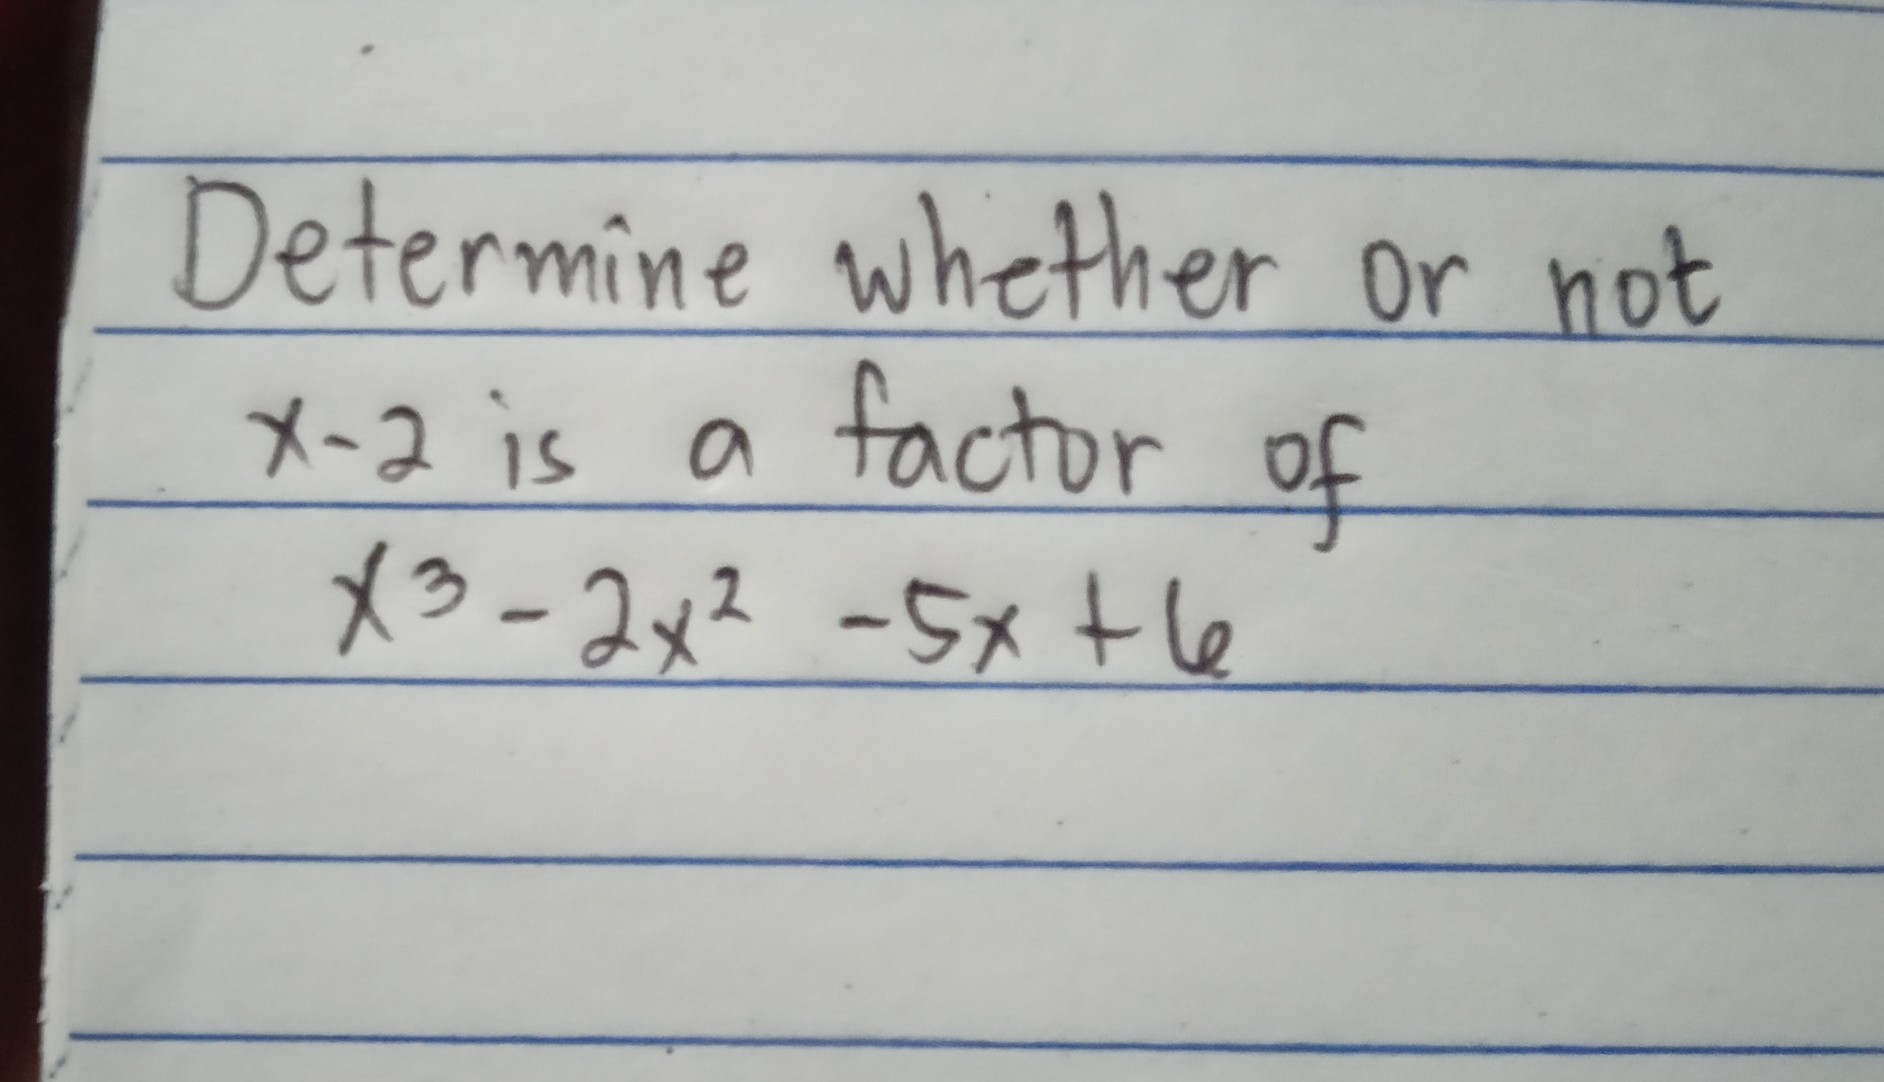 Determine whether or not
x-2 is a factor of
x³ - 2x² - 5x + 6